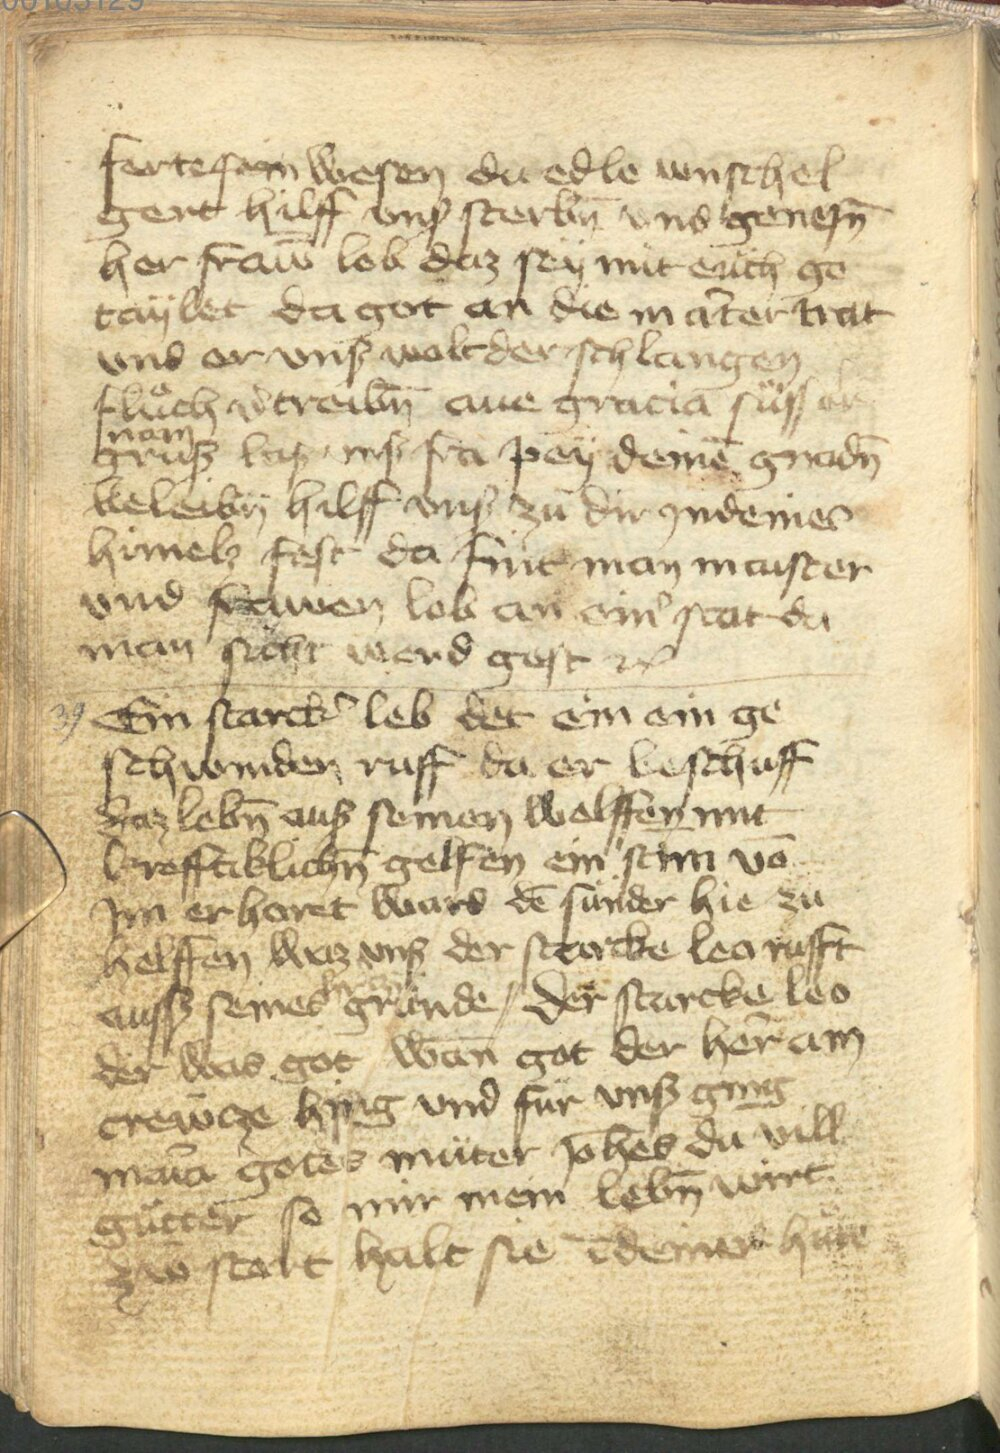 00105129
ferte sam wesen du edle wuschel
gert hilff vnß sterbn̄ vnd genesn̄
her fraw̄ lob daz sey mit eüch ge
taÿlet da got an die marter trat
vnd er vnß wolt der schlangen
fluͦch v'treibn̄ aue gracia süsser
nam
gruß laß vnß fra peÿ deinē gnadn̄
beleibn̄ hilff vnß zu dir yn deines
himels fest da fint man maister
vnd frawen lob an eim stat da
man sicht werd gest
39 Ein starck' leb det ein ein ge
schwinden ruff da er beschuff
daz lebn̄ auß seinen welffen mit
krefftiklichn̄ gelfen ein stim vō
Jm erhoret ward dē sünder hie zu
helffen waz vnß der starcke leo rufft
aussz seines grunde / Der starcke leo
der was got wan̄ got der her am
crewcze hing vnd für vnß ging
maria gotes müter Johes du vill
gütter so mir mein lebn̄ wirt
zw stort halt sie ī deiner hüte